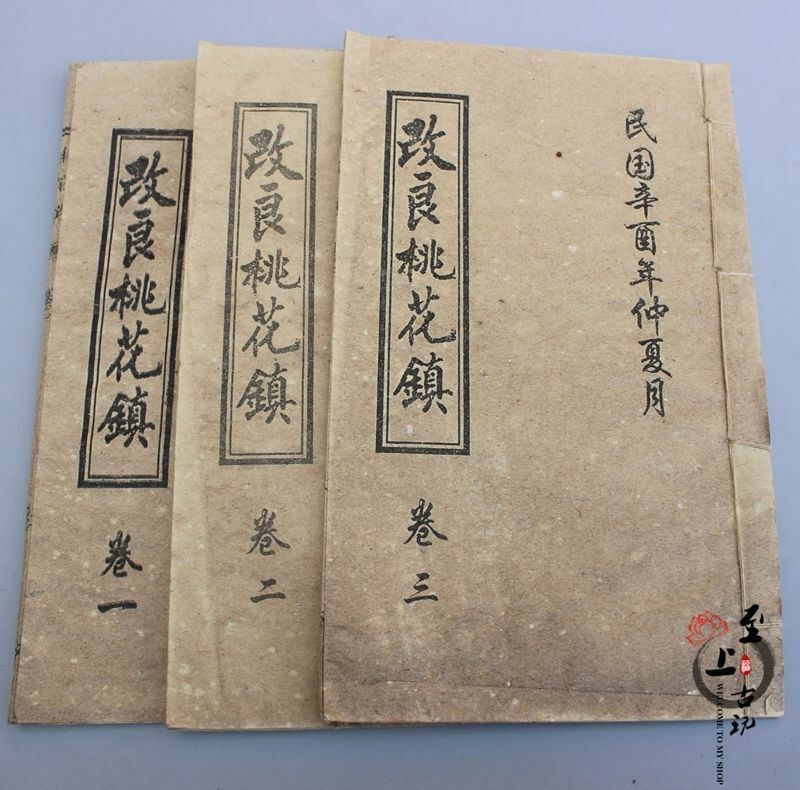 改良桃花鎮
卷一
改良桃花鎮
卷二
改良桃花鎮
卷三
民国辛酉年仲夏月
至上古玩
WELCOME TO MY SHOP